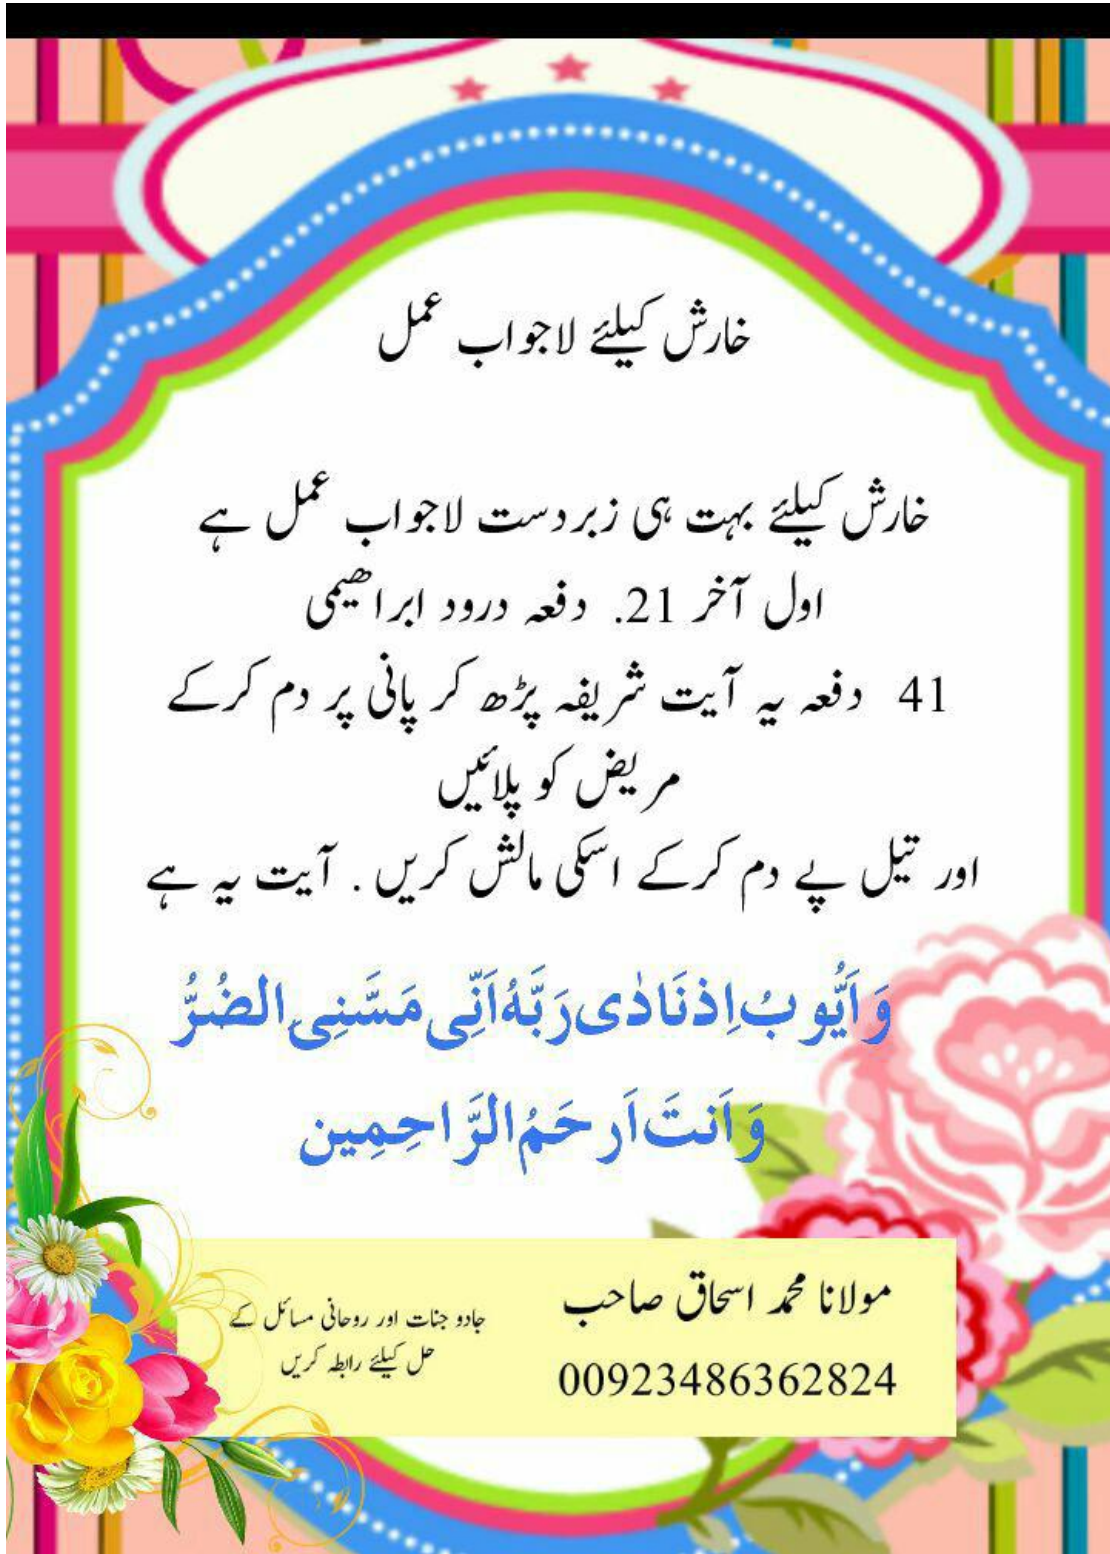 خارش کیلئے لاجواب عمل
خارش کیلئے بہت ہی زبردست لاجواب عمل ہے
اول آخر 21. دفعہ درود ابراھیمی
41 دفعہ یہ آیت شریفہ پڑھ کر پانی پر دم کرکے
مریض کو پلائیں
اور تیل پے دم کرکے اسکی مالش کریں . آیت یہ ہے
وَاَیُّوبُ اِذنَادٰی رَبَّهُ اَنِّی مَسَّنِی الضُرُّ
وَاَنتَ اَرحَمُ الرَّاحِمِین
مولانا محمد اسحاق صاحب
00923486362824
جادو جنات اور روحانی مسائل کے
حل کیلئے رابطہ کریں